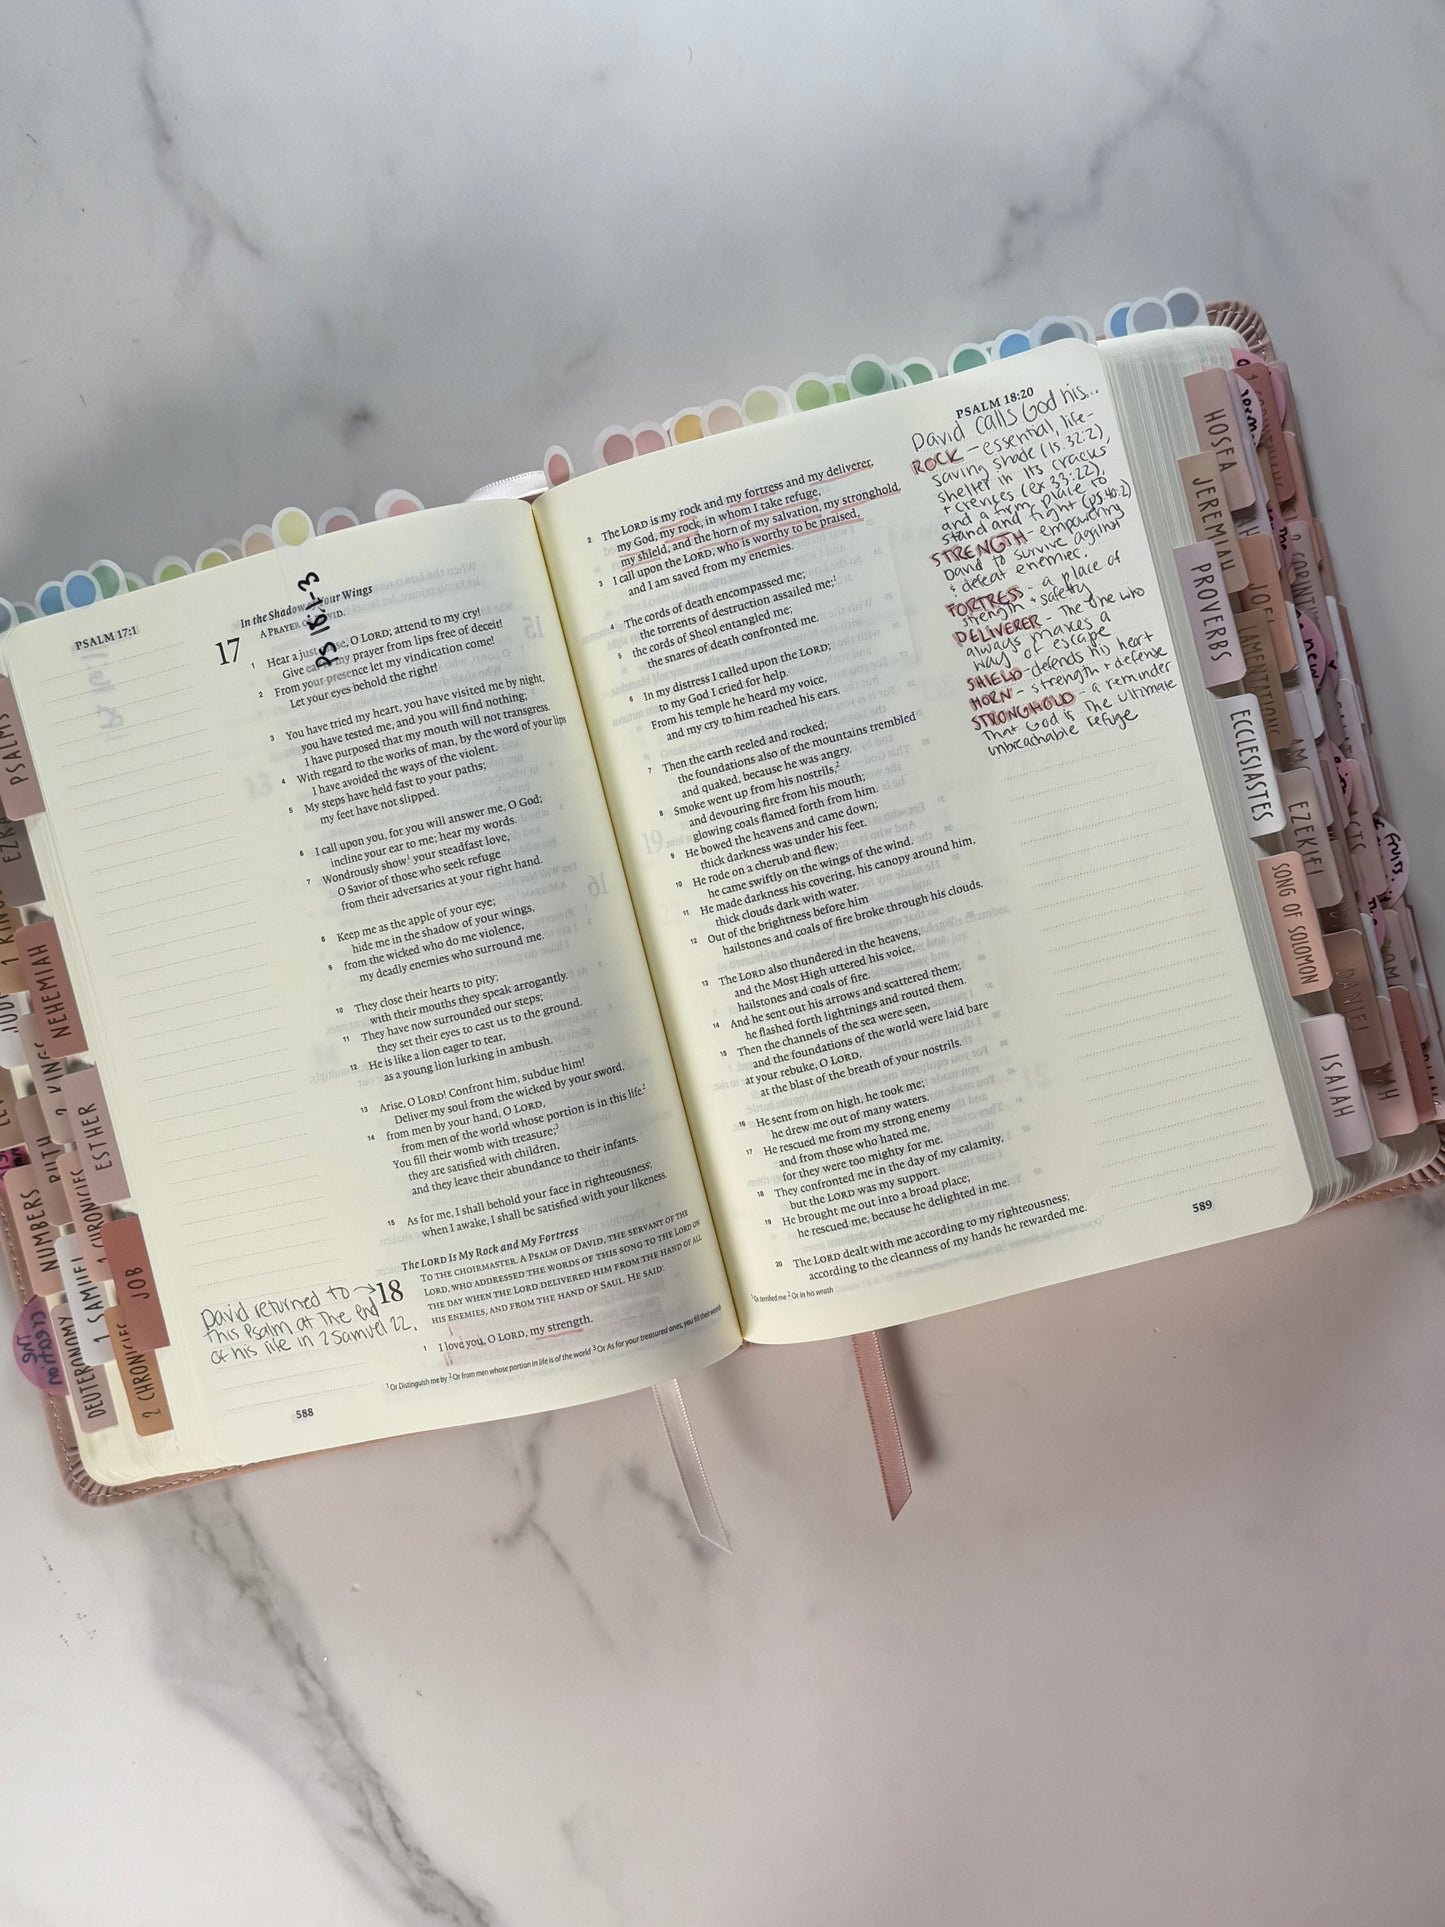 PSALM 17:1
PS 18:1-3
In the Shadow Your Wings
A PRAYER DAVID.
17
1 Hear a just se, O LORD; attend to my cry!
Give ear my prayer from lips free of deceit!
2 From your presence let my vindication come!
Let your eyes behold the right!
3 You have tried my heart, you have visited me by night,
you have tested me, and you will find nothing;
I have purposed that my mouth will not transgress.
4 With regard to the works of man, by the word of your lips
I have avoided the ways of the violent.
5 My steps have held fast to your paths;
my feet have not slipped.
6 I call upon you, for you will answer me, O God;
incline your ear to me; hear my words.
7 Wondrously show¹ your steadfast love,
O Savior of those who seek refuge
from their adversaries at your right hand.
8 Keep me as the apple of your eye;
hide me in the shadow of your wings,
9 from the wicked who do me violence,
my deadly enemies who surround me.
10 They close their hearts to pity;
with their mouths they speak arrogantly.
11 They have now surrounded our steps;
they set their eyes to cast us to the ground.
12 He is like a lion eager to tear,
as a young lion lurking in ambush.
13 Arise, O LORD! Confront him, subdue him!
Deliver my soul from the wicked by your sword,
14 from men by your hand, O LORD,
from men of the world whose portion is in this life.²
You fill their womb with treasure;³
they are satisfied with children,
and they leave their abundance to their infants.
15 As for me, I shall behold your face in righteousness;
when I awake, I shall be satisfied with your likeness.
The LORD Is My Rock and My Fortress
18 TO THE CHOIRMASTER. A PSALM OF DAVID, THE SERVANT OF THE
LORD, WHO ADDRESSED THE WORDS OF THIS SONG TO THE LORD ON
THE DAY WHEN THE LORD DELIVERED HIM FROM THE HAND OF ALL
HIS ENEMIES, AND FROM THE HAND OF SAUL. HE SAID:
1 I love you, O LORD, my strength.
David returned to →
this Psalm at the end
of his life in 2 Samuel 22.
¹ Or Distinguish me by ² Or from men whose portion in life is of the world ³ Or As for your treasured ones, you fill their womb
588
PSALM 18:20
2 The LORD is my rock and my fortress and my deliverer,
my God, my rock, in whom I take refuge,
my shield, and the horn of my salvation, my stronghold.
3 I call upon the LORD, who is worthy to be praised,
and I am saved from my enemies.
4 The cords of death encompassed me;
the torrents of destruction assailed me;¹
5 the cords of Sheol entangled me;
the snares of death confronted me.
6 In my distress I called upon the LORD;
to my God I cried for help.
From his temple he heard my voice,
and my cry to him reached his ears.
7 Then the earth reeled and rocked;
the foundations also of the mountains trembled
and quaked, because he was angry.
8 Smoke went up from his nostrils,²
and devouring fire from his mouth;
glowing coals flamed forth from him.
9 He bowed the heavens and came down;
thick darkness was under his feet.
10 He rode on a cherub and flew;
he came swiftly on the wings of the wind.
11 He made darkness his covering, his canopy around him,
thick clouds dark with water.
12 Out of the brightness before him
hailstones and coals of fire broke through his clouds.
13 The LORD also thundered in the heavens,
and the Most High uttered his voice,
hailstones and coals of fire.
14 And he sent out his arrows and scattered them;
he flashed forth lightnings and routed them.
15 Then the channels of the sea were seen,
and the foundations of the world were laid bare
at your rebuke, O LORD,
at the blast of the breath of your nostrils.
16 He sent from on high, he took me;
he drew me out of many waters.
17 He rescued me from my strong enemy
and from those who hated me,
for they were too mighty for me.
18 They confronted me in the day of my calamity,
but the LORD was my support.
19 He brought me out into a broad place;
he rescued me, because he delighted in me.
20 The LORD dealt with me according to my righteousness;
according to the cleanness of my hands he rewarded me.
¹ Or terrified me ² Or in his wrath
589
David calls God his...
ROCK - essential, life-
saving shade (Is. 32:2),
shelter in its cracks
+ crevices (ex 33:22),
and a firm place to
stand and fight (ps. 40:2)
STRENGTH - empowering
David to survive against
+ defeat enemies.
FORTRESS - a place of
strength + safety
DELIVERER - The one who
always makes a
way of escape
SHIELD - defends his heart
HORN - strength + defense
STRONGHOLD - a reminder
that God is the ultimate
unbreachable refuge
PSALMS
EZRA
NEHEMIAH
ESTHER
RUTH
NUMBERS
1 CHRONICLES
1 SAMUEL
JOB
DEUTERONOMY
2 CHRONICLES
the creation
HOSEA
JEREMIAH
PROVERBS
JOEL
LAMENTATIONS
ECCLESIASTES
EZEKIEL
ACTS
SONG OF SOLOMON
DANIEL
ISAIAH